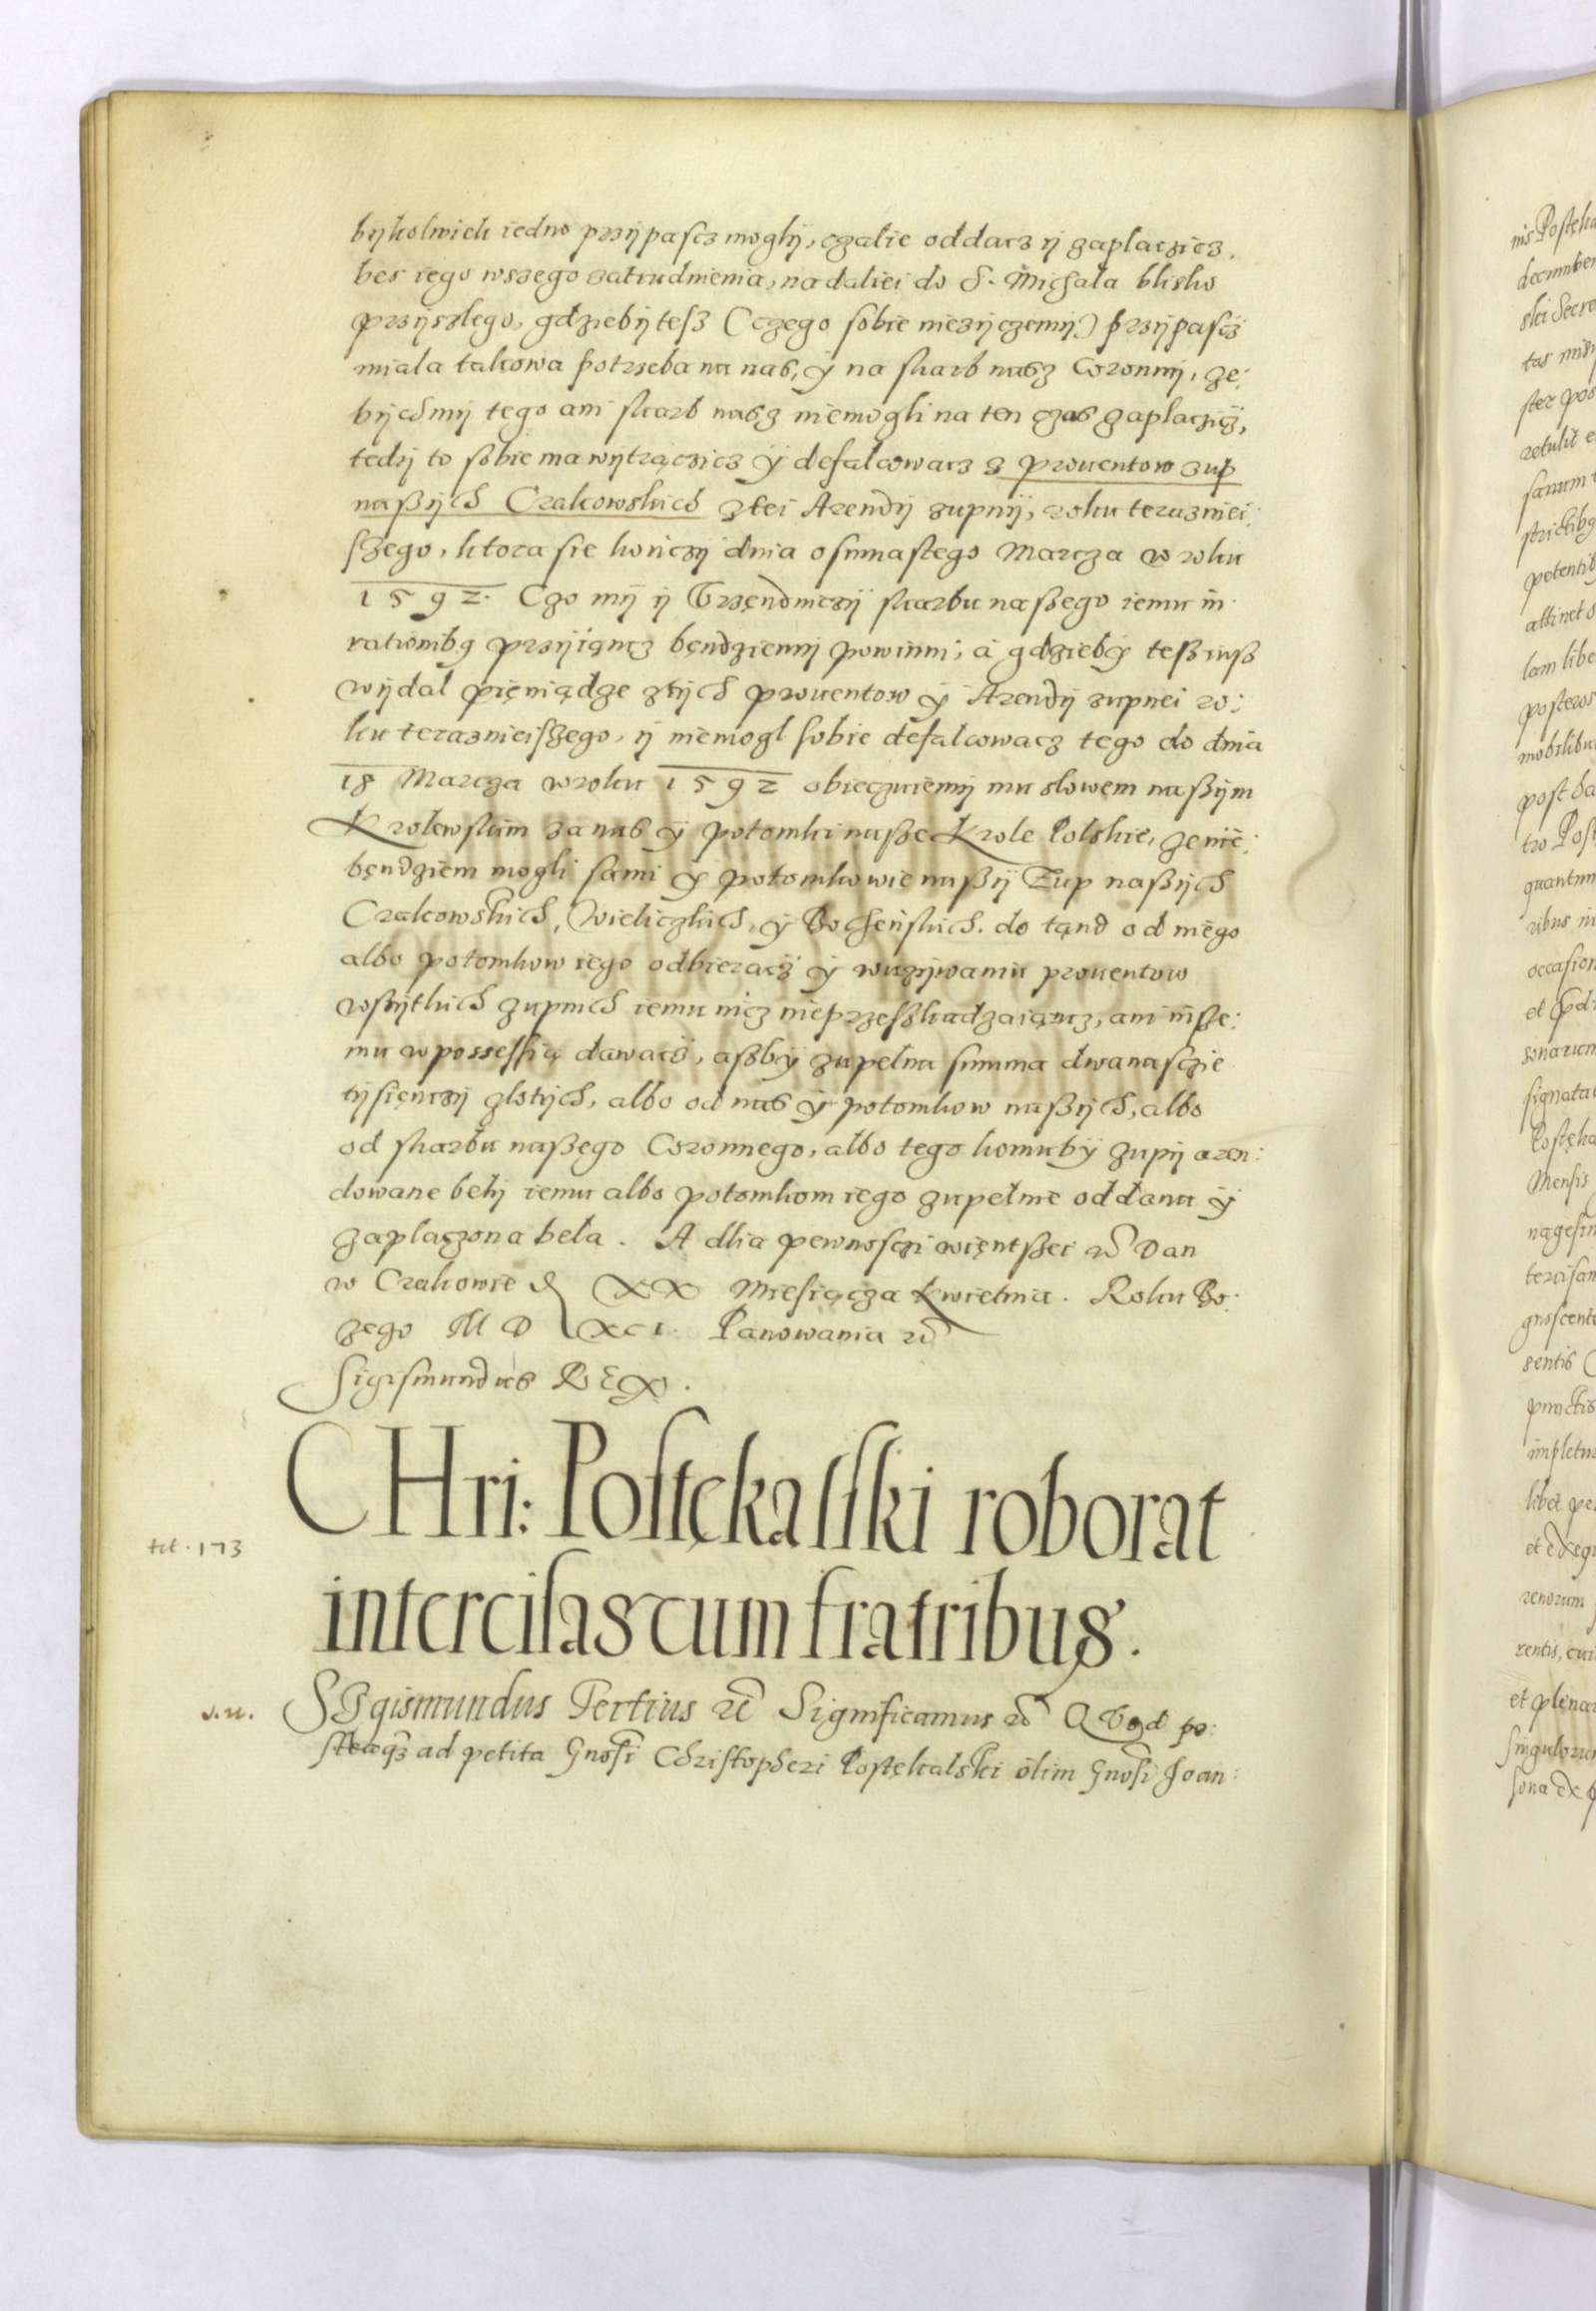 bykolwiek iedno przypascz mogly, czalie oddacz y zaplaczicz,
bes iego wszego zatrudnienia, nadaliei do S. Michala blisko
przyszlego, gdzieby tesz (czego sobie nieziczemy) przypascz
miala takowa potrzeba na nas, y na skarb nasz Coronny, ze:
bychmy tego ani skarb nasz niemogli na ten czas zaplaczicz,
tedy to sobie ma wytrączicz y defalcowacz z prouentow zup
naßych Crakowskich ztei Arendy zupny, roku terazniei:
szego, ktora sie kończy dnia osmnastego Marcza w roku
1592. Czo my y Urzędniczy skarbu naßego iemu in
rationibus przyiąncz będziemy powinni, a gdzieby teß iuß
wydal pięniądze z tych prouentow y Arendy zupnei ro:
ku teraznieiszego, y niemogl sobie defalcowacz tego do dnia
18 Marcza w roku 1592 obieczuiemy mu slowem naßym
Krolewskim za nas y potomki naße Krole Polskie, ze nie:
będziem mogli sami y potomkowie naßy Zup naßych
Crakowskich, Wieliczkich, y Bocheńskich. do tąnd od niego
albo potomkow iego odbieracz y wuzywaniu prouentow
wßytkich zupnich iemu nicz nieprzeszkadzaiąncz, ani inße:
mu w possessią dawacz, aßby zupelna summa dwanascie
tysięnczy zlotych, albo od nas y potomkow naßych, albo
od skarbu naßego Coronnego, albo tego komuby zupy aren:
dowane bely iemu albo potomkom iego zupelnie oddana y
zaplaczona bela. A dlia pewnosczi więntßei etc Dan
w Crakowie d. XX Miesiącza Kwietnia. Roku Bo:
zego M D XCI. Panowania etc
Sigismundus REX.
CHri: Postękalski roborat
tit. 173
intercisas cum fratribus.
SIgismundus Tertius etc Significamus etc Quod po:
steaq3 ad petita Gnosi Christopheri Postękalski olim Gnosi Joan: